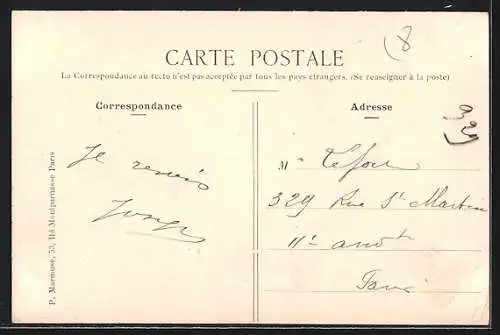 (8
CARTE POSTALE
La Correspondance au recto n'est pas acceptée par tous les pays étrangers. (Se renseigner à la poste)
Correspondance
Adresse
329
Je
M
329 Rue St Martin
11e arrodt
Paris
P. Marmuse, 53, Bd Montparnasse Paris